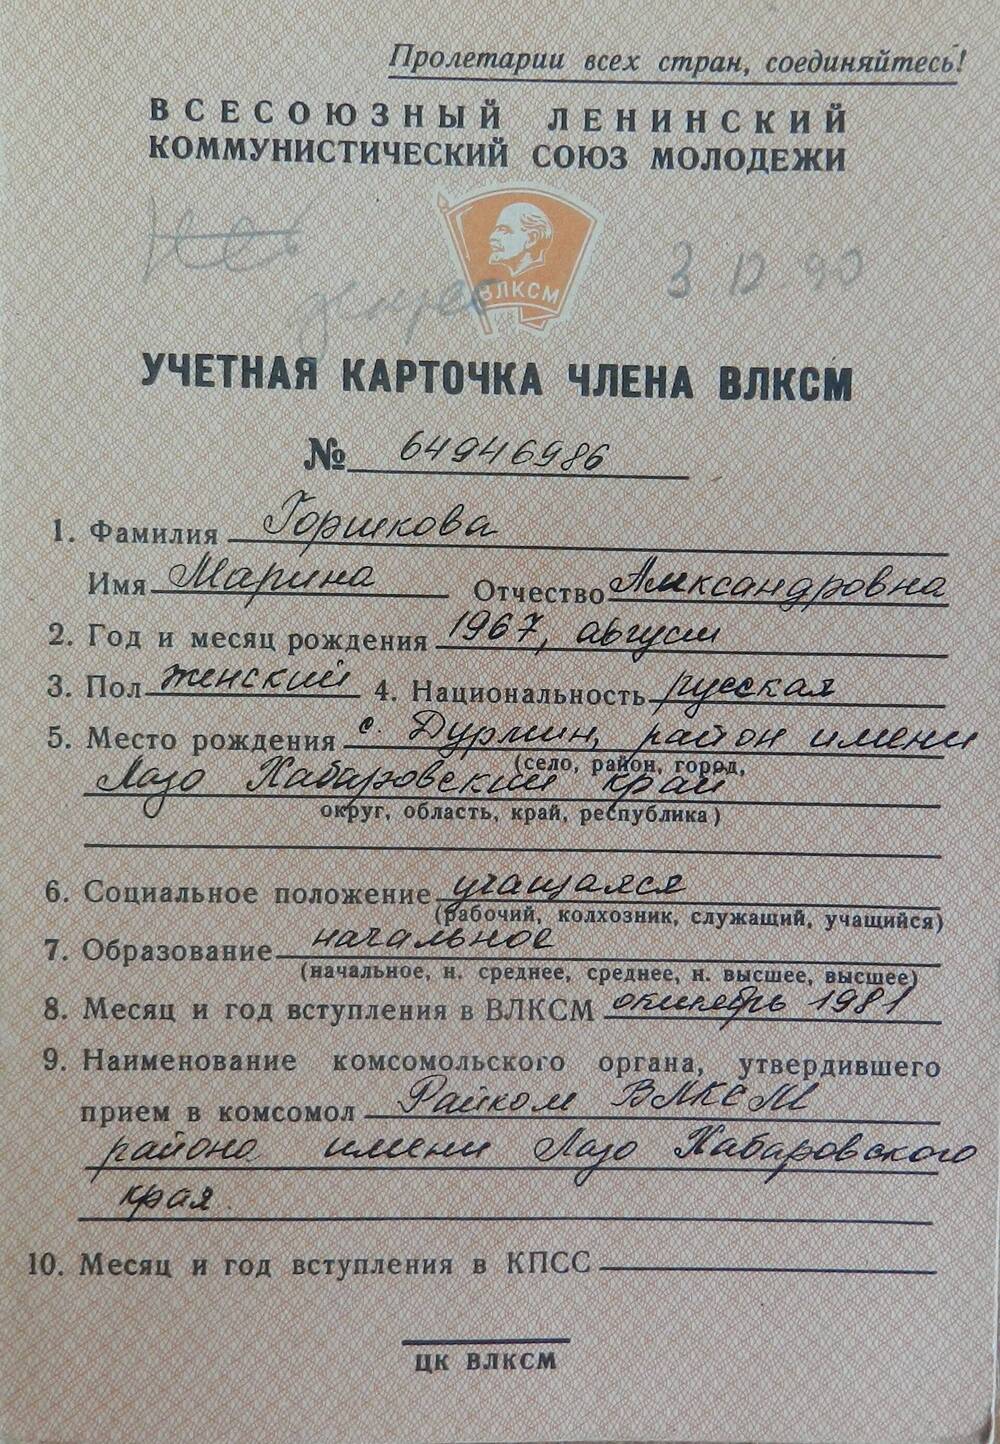 Пролетарии всех стран, соединяйтесь!
ВСЕСОЮЗНЫЙ ЛЕНИНСКИЙ
КОММУНИСТИЧЕСКИЙ СОЮЗ МОЛОДЕЖИ
3 10 90
ВЛКСМ
УЧЕТНАЯ КАРТОЧКА ЧЛЕНА ВЛКСМ
№ 64946986
1. Фамилия Горшкова
Имя Марина Отчество Александровна
2. Год и месяц рождения 1967, август
3. Пол женский 4. Национальность русская
5. Место рождения с. Дурмин, район имени
(село, район, город,
Лазо Хабаровский край
округ, область, край, республика)
6. Социальное положение учащаяся
(рабочий, колхозник, служащий, учащийся)
7. Образование начальное
(начальное, н. среднее, среднее, н. высшее, высшее)
8. Месяц и год вступления в ВЛКСМ октябрь 1981
9. Наименование комсомольского органа, утвердившего
прием в комсомол Райком ВЛКСМ
района имени Лазо Хабаровского
края.
10. Месяц и год вступления в КПСС
ЦК ВЛКСМ